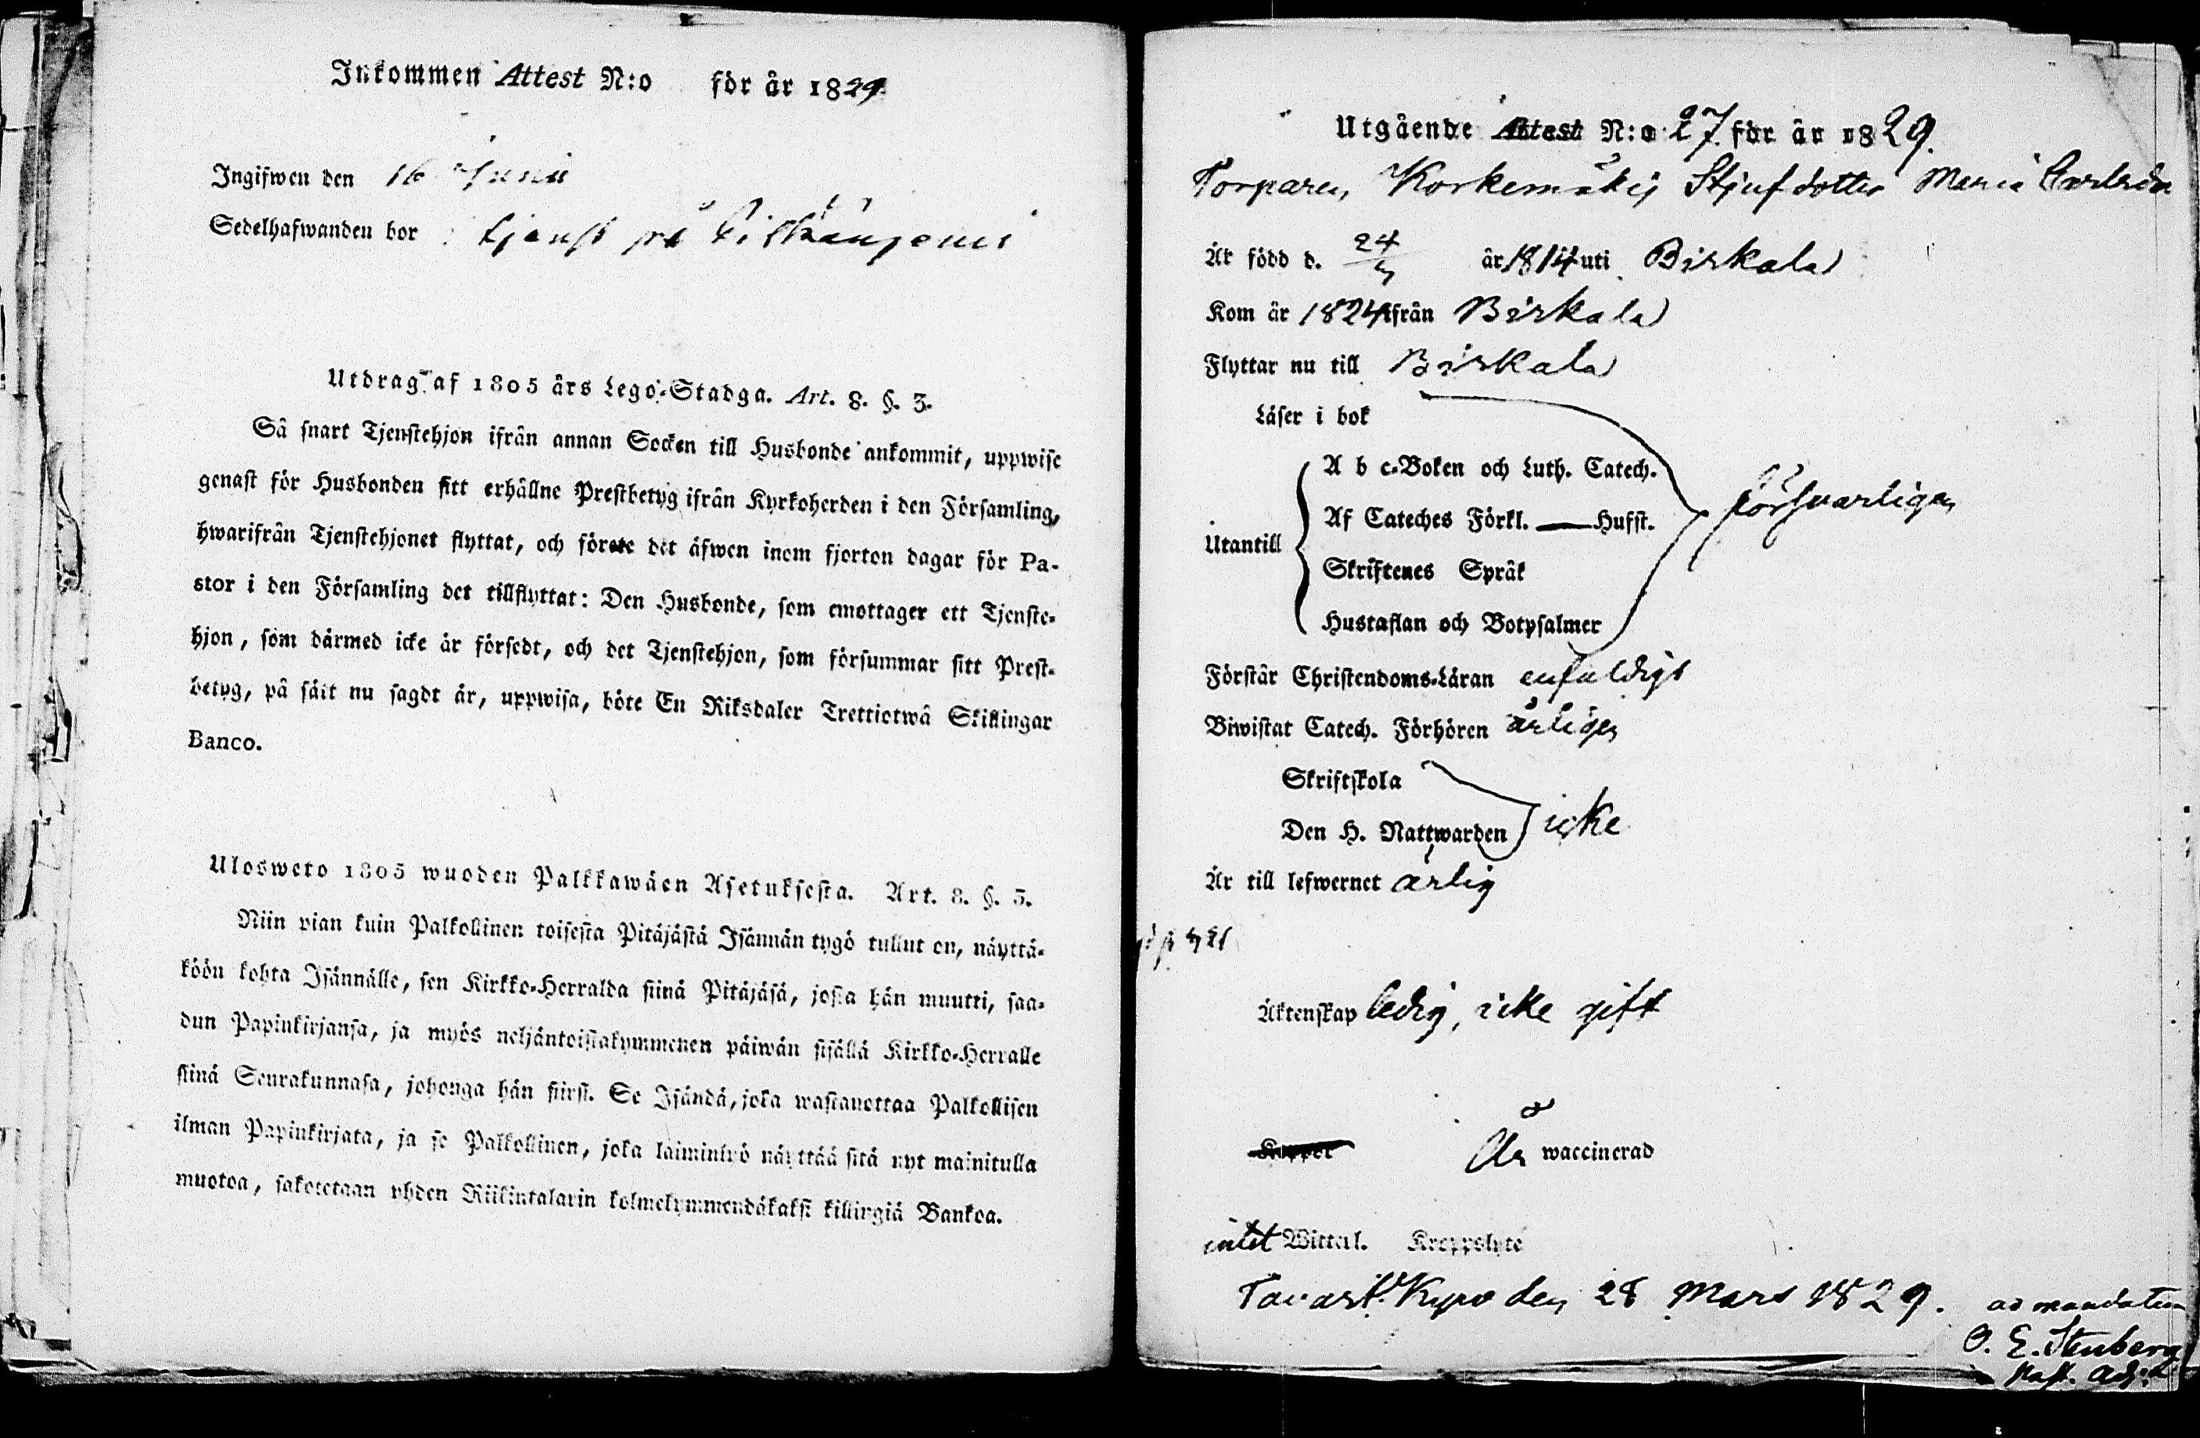 Inkommen Attest N:o för år 1829
Ingifwen den 16 Junii
Sedelhafwanden bor tjenst på
Utdrag af 1805 års Lego-Stadga. Art. 8. §. 3.
Så snart Tjenstehjon ifrån annan Socken till Husbonde ankommit, uppwise
genast för Husbonden sitt erhållne Prestbetyg ifrån Kyrkoherden i den Församling,
hwarifrån Tjenstehjonet flyttat, och förete det äfwen inom fjorton dagar för Pa-
stor i den Församling det tillflyttat: Den Husbonde, som emottager ett Tjenste-
hjon, som därmed icke är försedt, och det Tjenstehjon, som försummar sitt Prest-
betyg, på sätt nu sagdt är, uppwisa, böte En Riksdaler Trettiotwå Skillingar
Banco.
Ulosweto 1805 wuoden Palkkawäen Asetuksesta. Art. 8. §. 3.
Niin pian kuin Palkollinen toisesta Pitäjästä Isännän tygö tullut on, näyttä-
köön kohta Isännälle, sen Kirkko-Herralda siinä Pitäjäsä, josta hän muutti, saa-
dun Papinkirjansa, ja myös neljäntoistakymmenen päiwän sisällä Kirkko-Herralle
siinä Seurakunnasa, johonga hän siirsi. Se Isändä, joka wastanottaa Palkollisen
ilman Papinkirjata, ja se Palkollinen, joka laiminlyö näyttää sitä nyt mainitulla
muotoa, sakotetaan yhden Riikintalarin kolmekymmendäkaksi killingiä Bankoa.
Utgående Attest N:o 27 för år 1829.
Torparen Korkemäkis Stjufdotter Maria Carlsdr
Är född d. 24/4 år 1814 uti Birkala
Kom år 1824 ifrån Birkala
Flyttar nu till Birkala
Läser i bok
A b c-Boken och Luth. Catech.
försvarligen
Af Cateches Förkl. Hufst.
Utantill
Skriftenes Språk
Hustaflan och Botpsalmer
Förstår Christendoms-Läran enfaldigt
Biwistat Catech. Förhören årligen
Skriftskola
Den H. Nattwarden icke
Är till lefwernet ärlig
Äktenskap ledig, icke gift
Koppor Är waccinerad
intet Witterl. Kroppslyte
Tavast Kyro den 28 Mars 1829.
ad mandatum
O. E. Stenberg
Past. Adj: